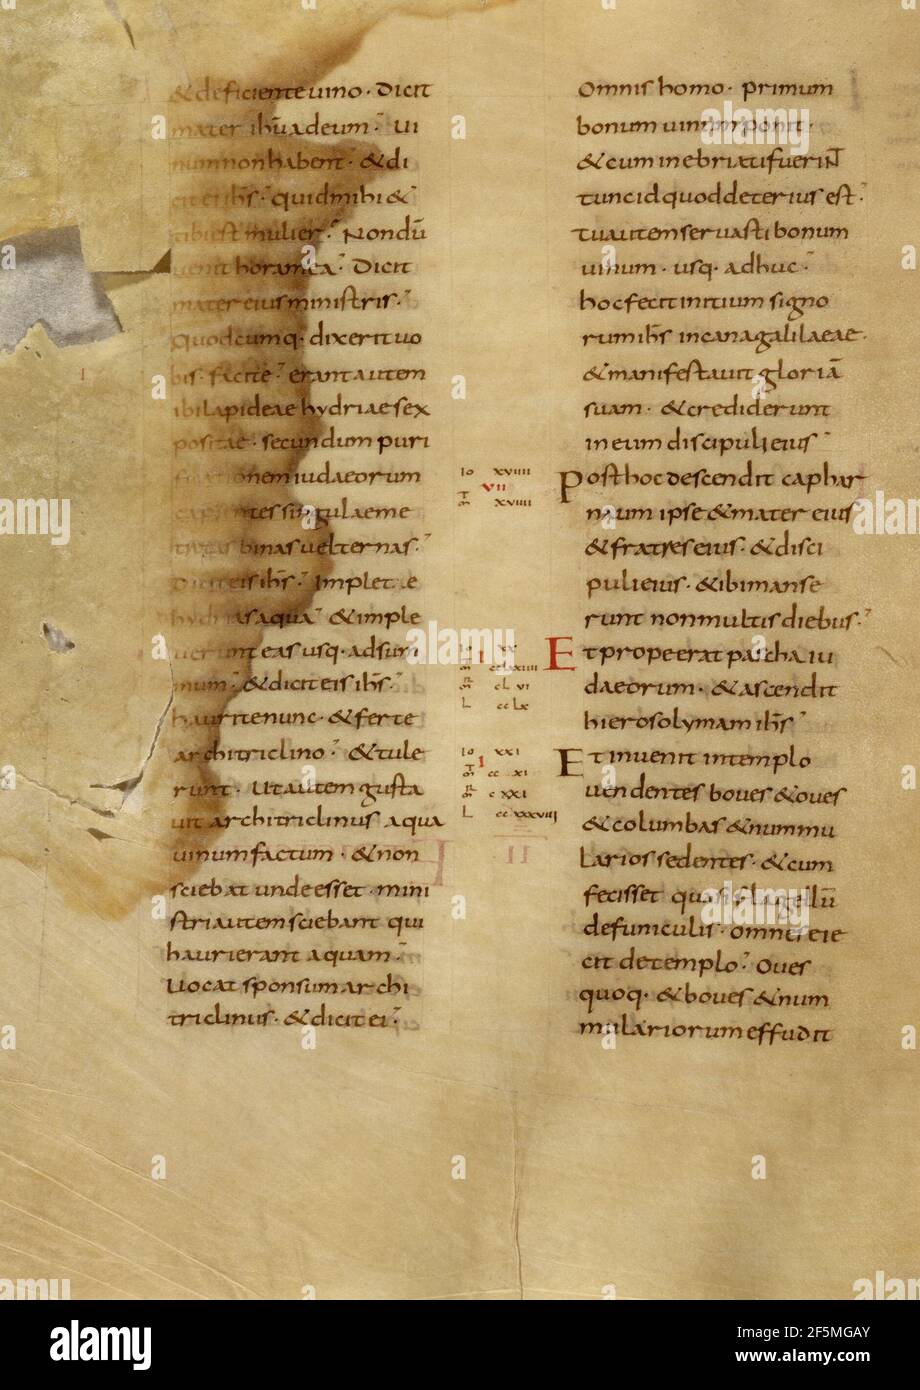 & deficiente uino · Dicit
mater ihū ad eum · Ui
num non habent · & di
cit ei ihs · quid mihi &
tibi est mulier · Nondū
uenit hora mea · Dicit
mater eius ministris ·
quodcumq· dixerit uo
bis · facite · erant autem
ibi lapideae hydriae sex
positae · secundum puri
ficationem iudaeorum
capientes singulae me
tretas binas uel ternas ·
Dicit eis ihs · Implete
hydrias aqua · & imple
uerunt eas usq· ad sum
mum · & dicit eis ihs ·
haurite nunc · & ferte
architriclino · & tule
runt · Ut autem gusta
uit architriclinus aqua
uinum factum · & non
sciebat unde esset · mini
stri autem sciebant qui
haurierant aquam ·
Uocat sponsum archi
triclinus · & dicit ei ·
I
Io XVIIII
VII
XVIIII
Io XX
I
cLxiiii
cL VI
L cc Lx
Io XXI
I
cc XI
c XXI
L cc xxxviii
II
Omnis homo · primum
bonum uinum ponit ·
& cum inebriati fuerint
tunc id quod deterius est ·
Tu autem seruasti bonum
uinum · usq· adhuc ·
hoc fecit initium signo
rum ihs in cana galilaeae ·
& manifestauit gloriā
suam · & crediderunt
in eum discipuli eius
Post hoc descendit caphar
naum ipse & mater eius
& fratres eius · & disci
puli eius · & ibi manse
runt non multis diebus ·
Et prope erat pascha iu
daeorum · & ascendit
hierosolymam ihs
Et inuenit in templo
uendentes boues & oues
& columbas & nummu
larios sedentes · & cum
fecisset quasi flagellū
de funiculis · omnes eie
cit de templo · Oues
quoq· & boues & num
mulariorum effudit
alamy
Image ID: 2F5MGAY
www.alamy.com